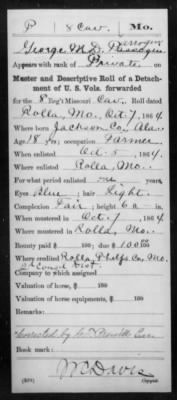 P 8 Cav. Mo.
George M. D.
Appears with rank of Private
Muster and Descriptive Roll of a Detach-
ment of U. S. Vols. forwarded
for the 8 Reg't Missouri Cav. Roll dated
Rolla, Mo. Oct. 7, 1864
Where born Jackson Co., Ala.
Age 18 y'rs; occupation Farmer
When enlisted Oct. 5, 1864
Where enlisted Rolla, Mo.
For what period enlisted years.
Eyes Blue; hair Light.
Complexion Fair; height 6 ft. in.
When mustered in Oct. 7, 1864
Where mustered in Rolla, Mo.
Bounty paid $ 100; due $ 100 00/100
Where credited Rolla, Phelps Co., Mo.
Cong'l Dist.
Company to which assigned
Valuation of horse, $ 100
Valuation of horse equipments, $ 100
Remarks:
Book mark:
Davis
Copyist.